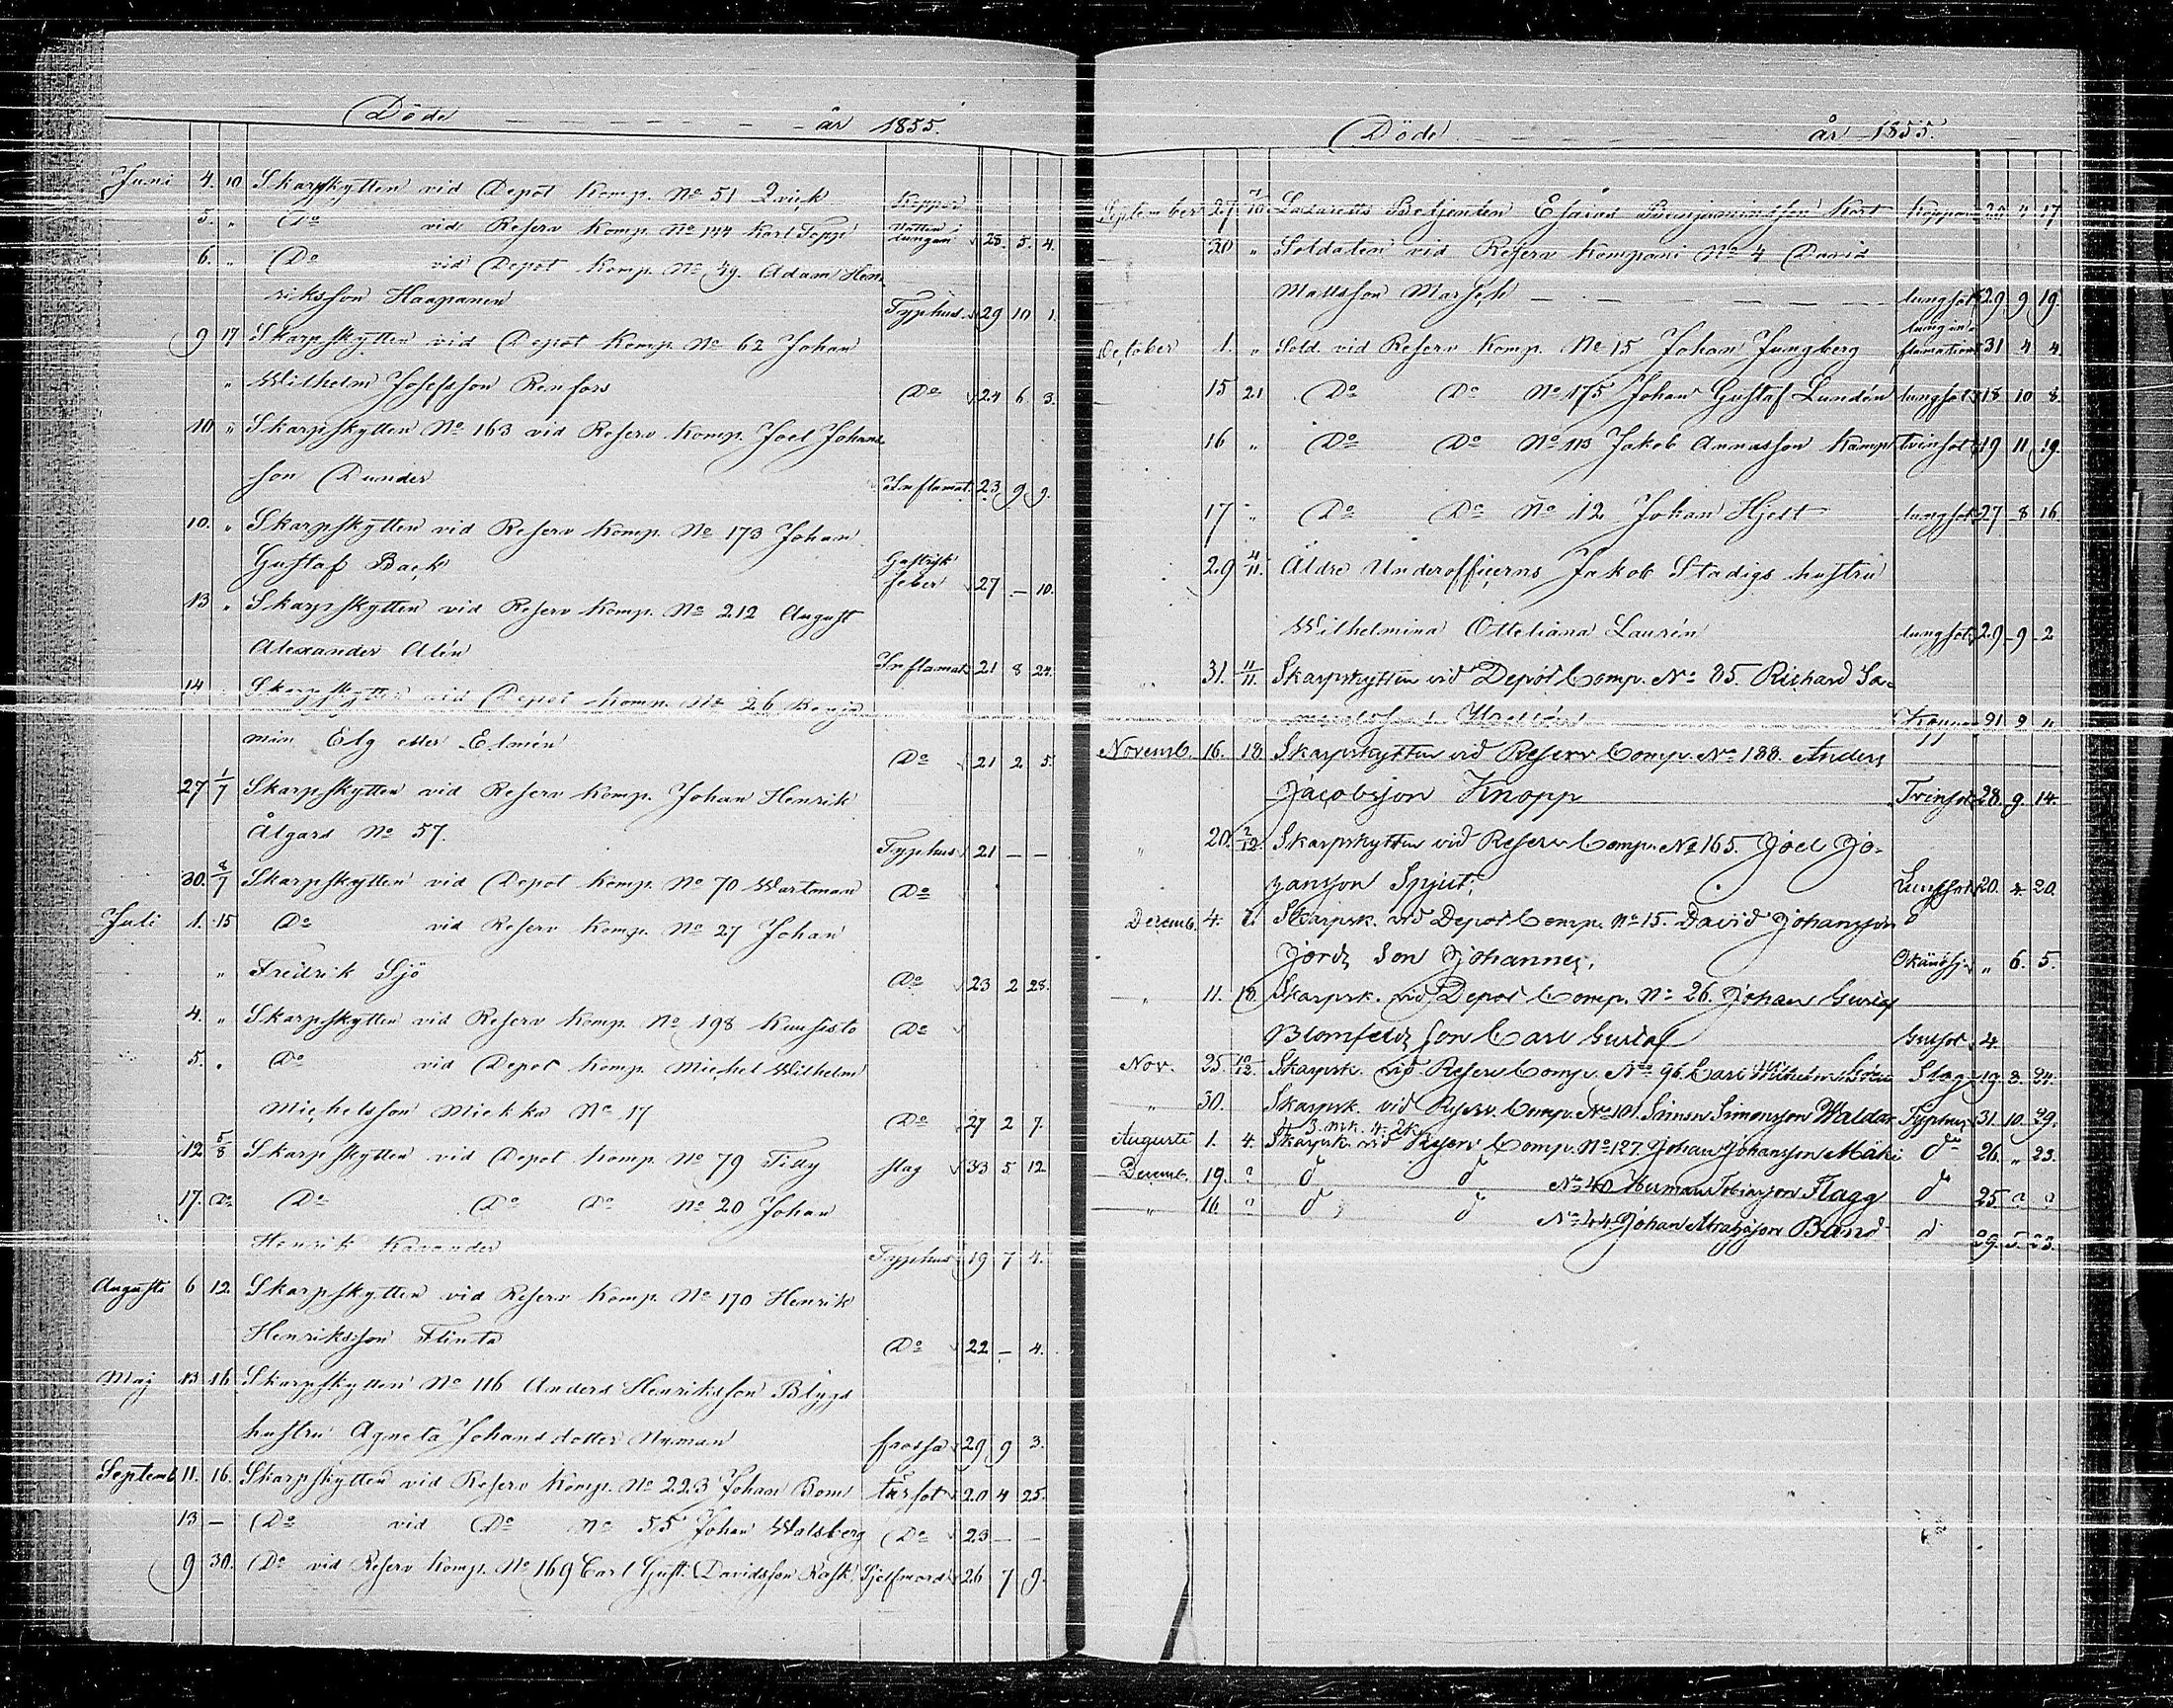 Döde - - - - - - - år 1855.
Juni 4. 10 Skarpskytten vid Depôt Komp. No 51 Qvick Koppor
5. " Do vid Reserv Komp. No 144 Karl Topp Lungan 28. 5. 4.
6. " Do vid Depôt Komp. No 49. Adam Hen-
riksson Haapanen Typhus 29 10 1.
9 17 Skarpskytten vid Depôt Komp. No 62 Johan
" Wilhelm Josefsson Renfors Do 24 6 3.
10 " Skarpskytten No 163 vid Reserv Komp. Joel Johans-
son Dunder Inflamat. 23 9 9.
10. " Skarpskytten vid Reserv Komp. No 173 Johan
Gustaf Back Gastrisk feber 27 - 10.
13 " Skarpskytten vid Reserv Komp. No 212 August
Alexander Alén Inflamat. 21 8 24.
14 " Skarpskytten vid Depôt Komp. No 26 Benja
min Elg eller Elmén Do 21 2 5.
27 1/7 Skarpskytten vid Reserv Komp. Johan Henrik
Ålgars No 57. Typhus 21 - -
30. 8/7 Skarpskytten vid Depôt Komp. No 70 Wartman Do
Juli 1. 15 Do vid Reserv Komp. No 27 Johan
" Fredrik Sjö Do 23 2 28.
4. " Skarpskytten vid Reserv Komp. No 198 Kunsisto Do
5. " Do vid Depôt Komp. Michel Wilhelm
Michelsson Miekka No 17 Do 27 2 7.
12 5/8 Skarpskytten vid Depôt Komp. No 79 Tilly slag 33 5 12
17. Do Do Do Do No 20 Johan
Henrik Kavander Typhus 19 7 4.
Augusti 6 12. Skarpskytten vid Reserv Komp. No 170 Henrik
Henriksson Flinta Do 22 - 4.
Maj 13 16 Skarpskytten No 116 Anders Henriksson Blygs
hustru Agneta Johansdotter Nyman frossa 29 9 3.
Septemb. 11. 16. Skarpskytten vid Reserv Komp. No 223 Johan Bom tärsot 20 4 25.
13 - Do vid Do No 55 Johan Walsberg Do 23 - -
9 30. Do vid Reserv Komp. No 169 Carl Gust. Davidsson Rask Sjelfmord 26 7 9.
Döde - - - - - - - år 1855.
September 27 7/10 Lazaretts Betjenten Esaias Benjaminsson Kort Koppor 20 4 17
30 " Soldaten vid Reserv Kompani No 4 David
Mattsson Marsch - - - - - - lungsot 29 9 19
October 1. " Sold. vid Reserv Komp. No 15 Johan Jungberg lung inflamation 31 4 4.
15 21 Do Do No 175 Johan Gustaf Lundén lungsot 18 10 8.
16 " Do Do No 113 Jakob Annasson Kamp tvinsot 19 11 19.
17 " Do Do No 12 Johan Hjelt lungsot 27 8 16
29 4/11. Äldre Underofficerns Jakob Stadigs hustru
Wilhelmina Otteliana Laurén lungsot 29 9 2
31. 11/11. Skarpskytten vid Depôt Comp. No 85. Richard Sa-
Koppor 21 9 11
Novemb. 16. 18. Skarpskytten vid Reserv Comp. No 188. Anders
Jacobsson Knopp Tvinsot 28. 9. 14.
" 20. 2/12. Skarpskytten vid Reserv Comp. No 165. Joel Jo-
hansson Spjut; Lungsot 20. 4. 20.
Decemb. 4. 7. Skarpsk. vid Depot Comp. No 15. David Johansson
Jords Son Johannes, Okänd sj. " 6. 5.
" 11. 18. Skarpsk. vid Depot Comp. No 26. Johan Gustaf
Blomfelds son Carl Gustaf 4.
Nov. 25. 10/12. Skarpsk. vid Reserv Comp. No 96. Carl Wilhelm Slag 19. 3. 24.
" 30. Skarpsk. vid Reserv Comp. No 101. Simon Simonsson Waldar Typhus 31. 10. 29.
Augusti 1. 4. Skarpsk. vid Reserv Comp. No 127. Johan Johansson Mäki do 26. " 23.
Decemb. 19. ? d d No 40 Herman Tobiasson Flagg do 25. ? ?
" 16. ? d d No 44. Johan Abrahsson Band d 29. 5. 23.